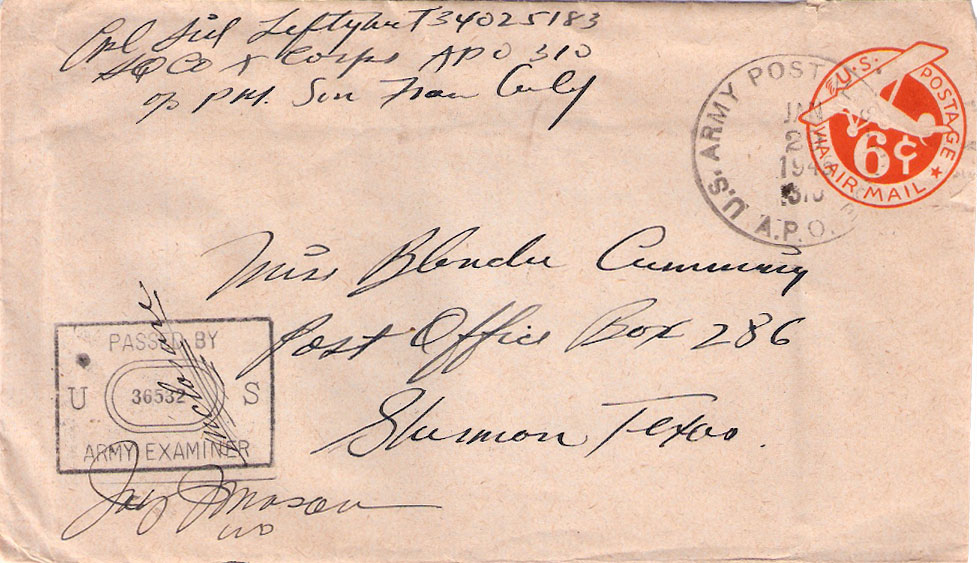 Cpl Sid Leftwich 34025183
HQ Co X Corps APO 310
c/o P.M. San Fran Calif
U.S. ARMY POSTAL
JAN
2
194
310
A.P.O.
U.S. POSTAGE
6¢
VIA AIR MAIL
Miss Blenda Cumming
Post Office Box 286
Sherman Texas.
PASSED BY
U 36532 S
ARMY EXAMINER
Jay Johnson
WO